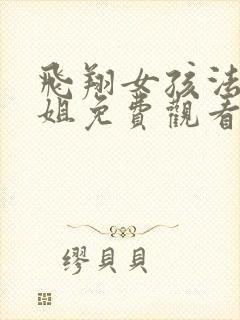 飛翔女孩法
姐免費觀看
繆貝貝